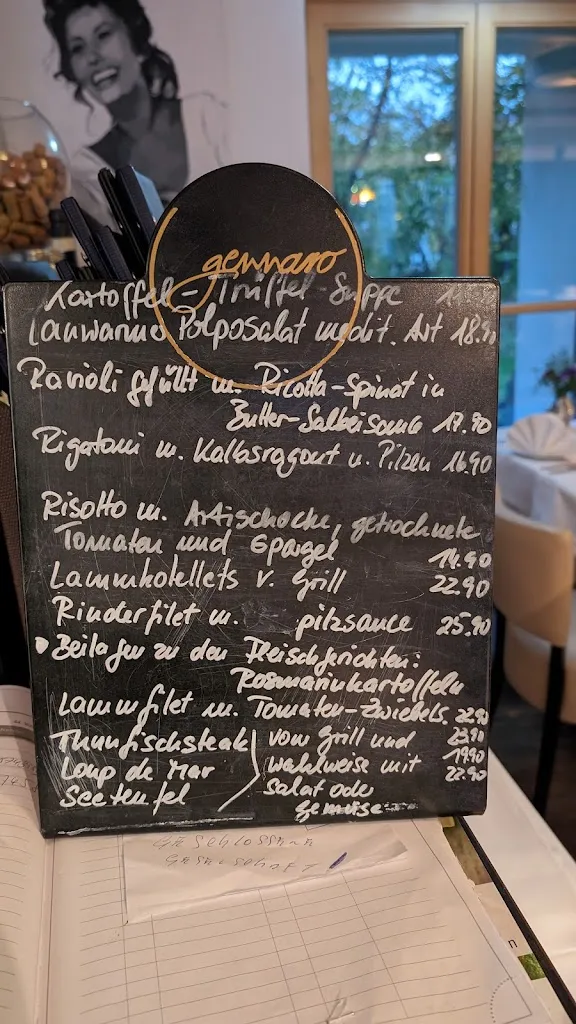 gennaro
Kartoffel-Trüffel-Suppe
Lauwarme Polposalat medit. Art 18.90
Ravioli gefüllt m. Ricotta-Spinat in
Butter-Salbeisauce 17.90
Rigatoni m. Kalbsragout u. Pilzen 16.90
Risotto m. Artischocke, getrocknete
Tomaten und Spargel 14.90
Lammkotellets v. Grill 22.90
Rinderfilet m. pilzsauce 25.90
• Beilagen zu den Fleischgerichten:
Rosmarinkartoffeln
Lammfilet m. Tomaten-Zwiebels 22.90
Thunfischsteak vom Grill und 23.90
Loup de Mar wahlweise mit 19.90
Seeteufel salat ode 22.90
gemüse
GESCHLOSSENE
GESELSCHAFT